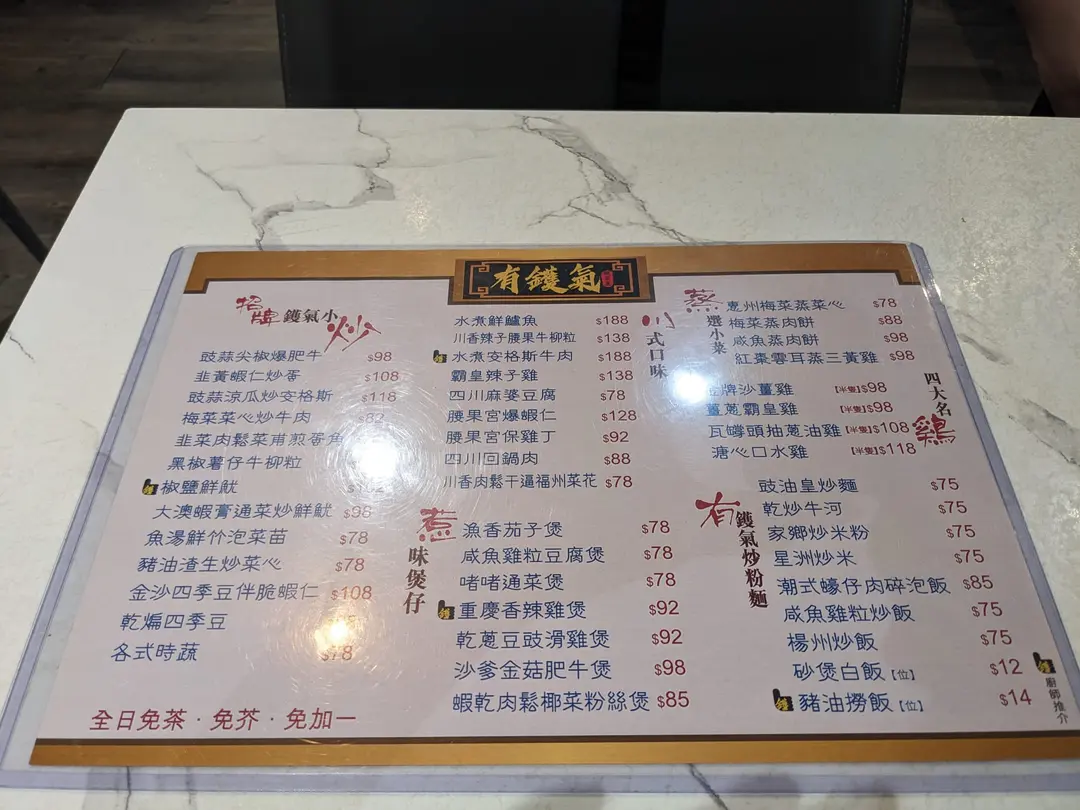 有鑊氣
招牌鑊氣小炒
豉蒜尖椒爆肥牛 $98
韭黃蝦仁炒蛋 $108
豉蒜涼瓜炒安格斯 $118
梅菜菜心炒牛肉 $82
韭菜肉鬆菜甫煎蛋角
黑椒薯仔牛柳粒
椒鹽鮮魷
大澳蝦膏通菜炒鮮魷 $98
魚湯鮮竹泡菜苗 $78
豬油渣生炒菜心 $78
金沙四季豆伴脆蝦仁 $108
乾煸四季豆
各式時蔬 $78
全日免茶 · 免芥 · 免加一
川式口味
水煮鮮鱸魚 $188
川香辣子腰果牛柳粒 $138
水煮安格斯牛肉 $188
霸皇辣子雞 $138
四川麻婆豆腐 $78
腰果宮爆蝦仁 $128
腰果宮保雞丁 $92
四川回鍋肉 $88
川香肉鬆干逼福州菜花 $78
煮味煲仔
漁香茄子煲 $78
咸魚雞粒豆腐煲 $78
啫啫通菜煲 $78
重慶香辣雞煲 $92
乾蔥豆豉滑雞煲 $92
沙爹金菇肥牛煲 $98
蝦乾肉鬆椰菜粉絲煲 $85
蒸選小菜
惠州梅菜蒸菜心 $78
梅菜蒸肉餅 $88
咸魚蒸肉餅 $98
紅棗雲耳蒸三黃雞 $98
四大名雞
牌沙薑雞 [半隻]$98
薑蔥霸皇雞 [半隻]$98
瓦罉頭抽蔥油雞 [半隻]$108
溏心口水雞 [半隻]$118
有鑊氣炒粉麵
豉油皇炒麵 $75
乾炒牛河 $75
家鄉炒米粉 $75
星洲炒米 $75
潮式蠔仔肉碎泡飯 $85
咸魚雞粒炒飯 $75
楊州炒飯 $75
砂煲白飯 [位] $12
豬油撈飯 [位] $14
廚師推介